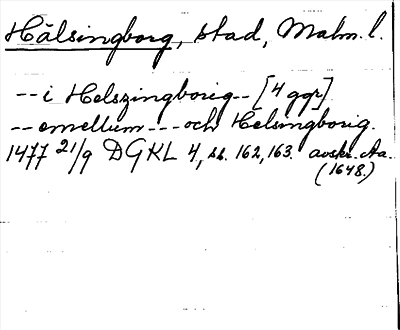 Hälsingborg, stad, Malm. l.
-- i Helszingborig -- [4 ggr].
-- emellum --- och Helsingborig.
1477 21/9 DGKL 4, ss. 162, 163. avskr. Aa.
(1648.)